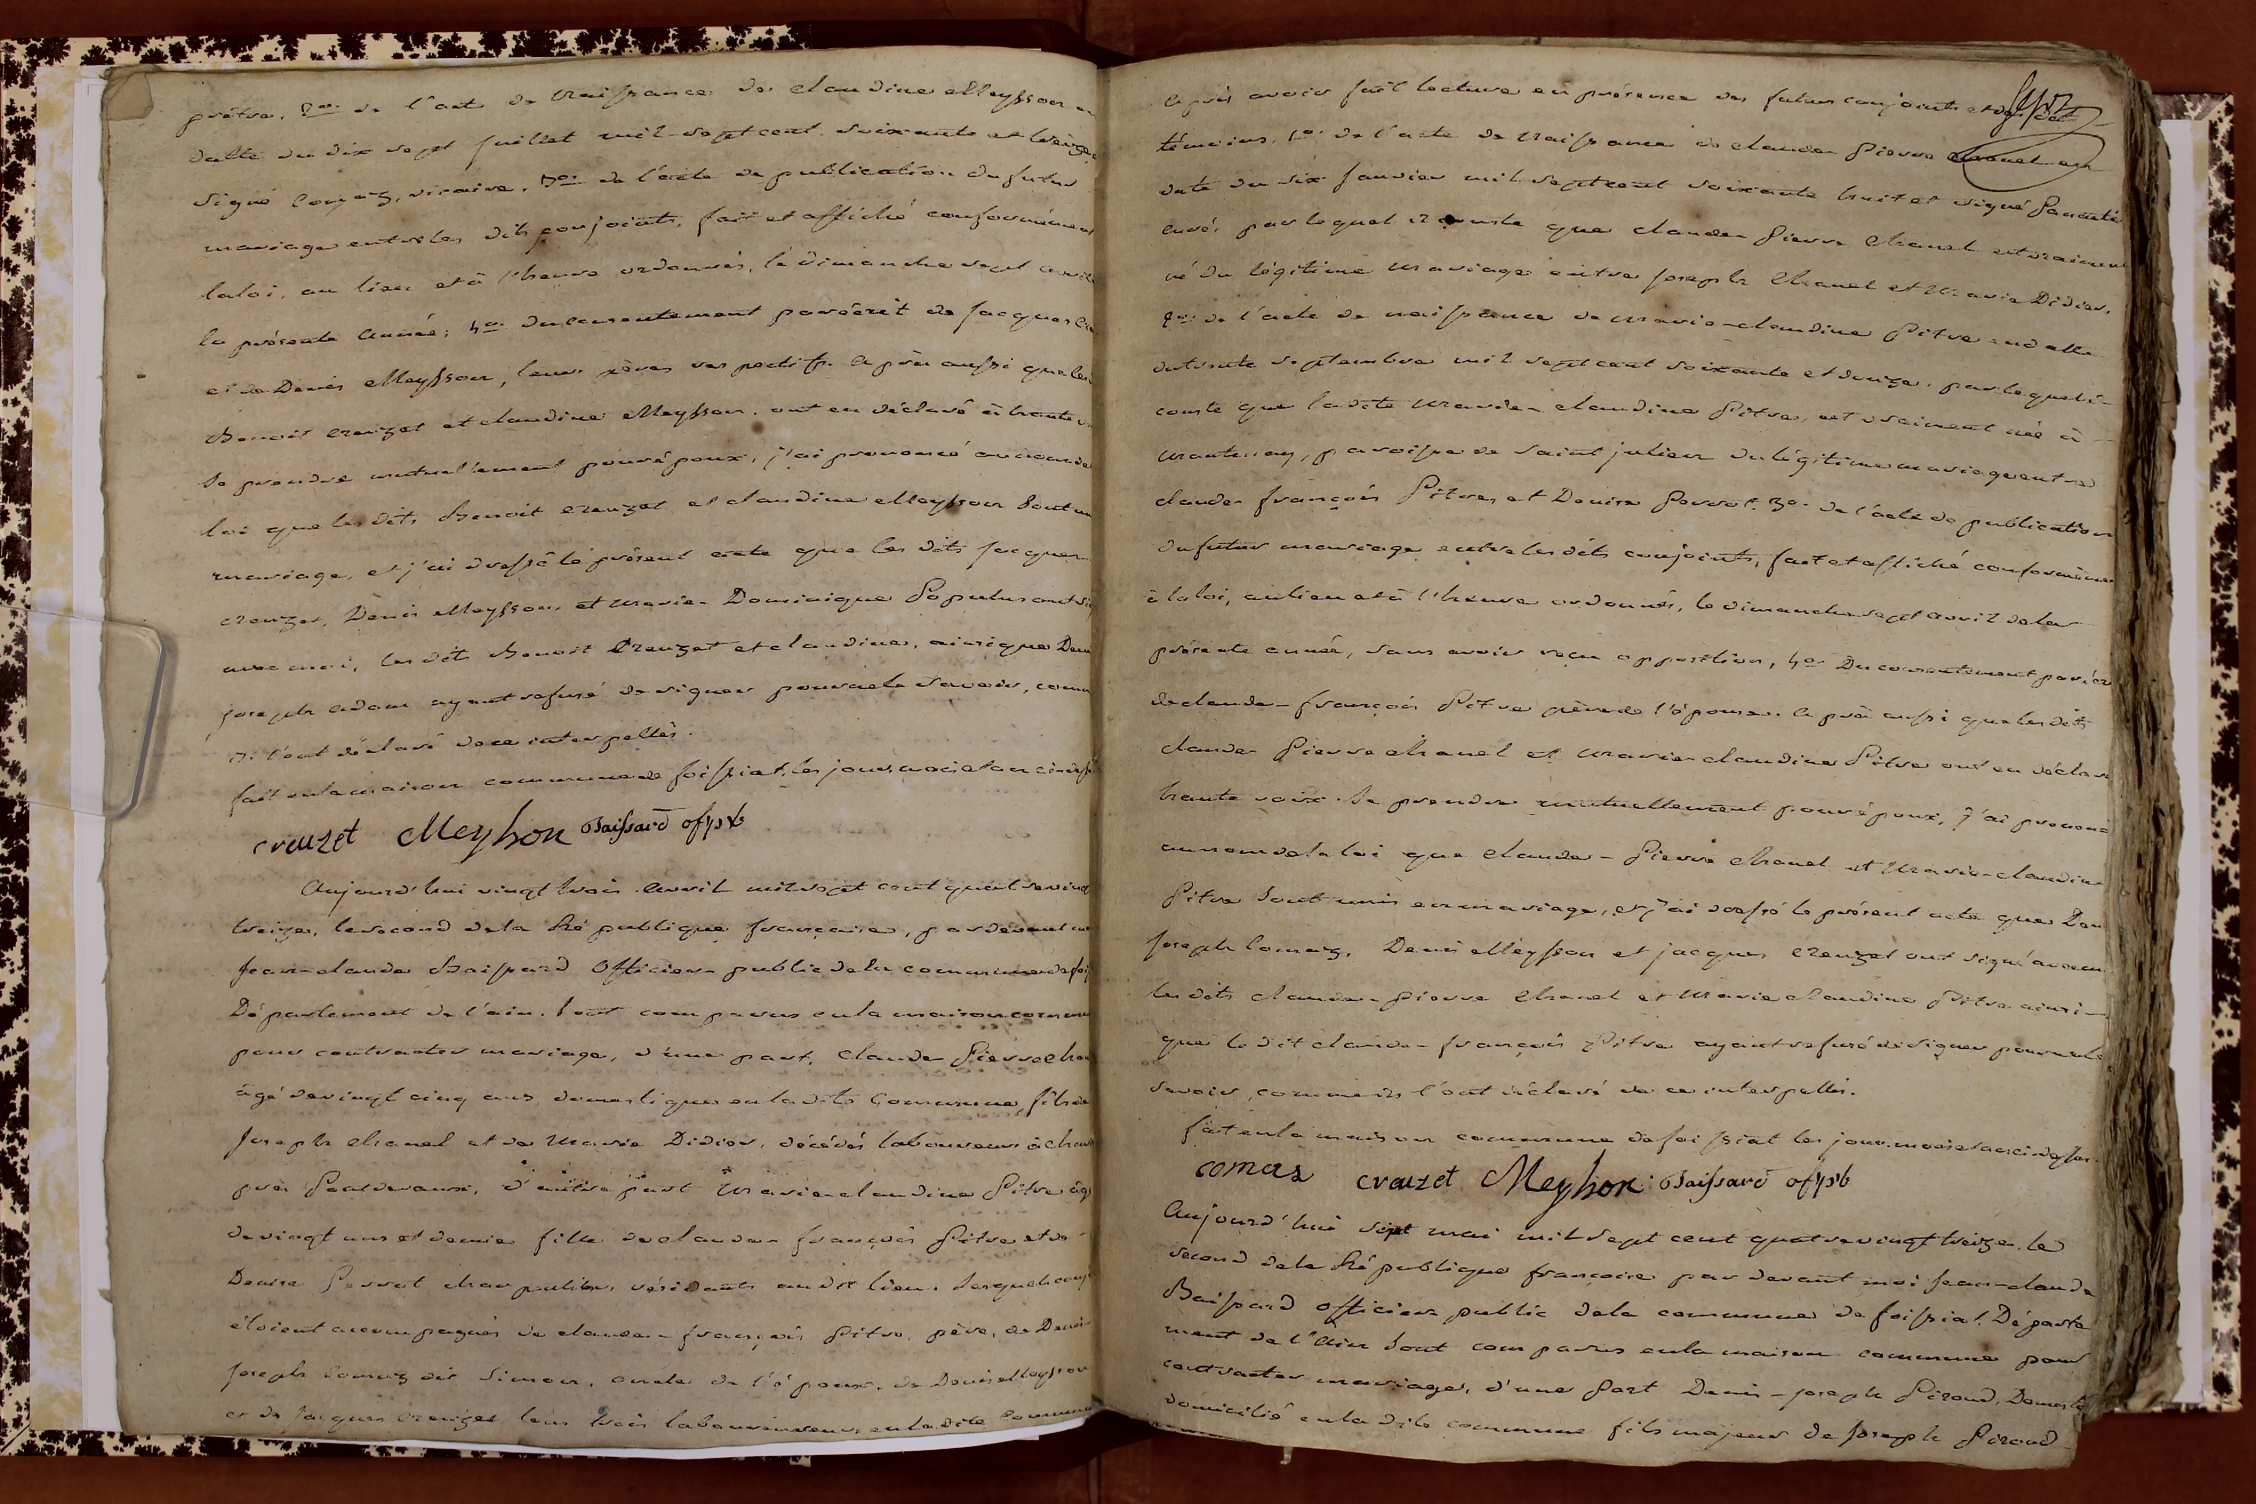 prêtre. 2.° de l'acte de naissance de claudine Meysson en
datte du dix sept juillet mil sept cent soixante et treize,
signé Comaz, vicaire. 3.° de l'acte de publication du futur
mariage entre les dits conjoints, fait et affiché conformément
la loi, au lieu et à l'heure ordonnés, le dimanche sept avril
la présente année; 4.° du consentement par écrit de jacques
et de Denis Meysson, leurs pères respectifs. après aussi que les
Benoit creuzet et claudine Meysson, ont eu déclaré à haute
se prendre mutuellement pour époux, j'ai prononcé au nom de
loi que les dits Benoit creuzet et claudine Meysson sont
mariage, et j'ai dressé le présent acte que les dits jacques
creuzet, Denis Meysson, et marie-Dominique Populus ont
avec moi, les dits Benoit Creuzet et claudine, ainsi que
joseph adam ayant refusé de signer pour ne le savoir, comme
ils l'ont déclaré de ce interpellés.
fait en la maison commune de foissiat, les jour, mois et an
creuzet Meysson Baissard of. p.b
Aujourd'hui vingt trois avril mil sept cent quatre vingt
treize, le second de la République française, par devant
Jean-claude Baissard Officier public de la commune de
Département de l'ain. sont comparus en la maison commune
pour contracter mariage, d'une part, claude Pierre
âgé de vingt cinq ans, domestique en la dite Commune, fils de
Joseph Chanel et de Marie Didier, décédés laboureurs à
près Pontdevaux, d'autre part Marie-claudine Pitre
de vingt ans et demie fille de claude-françois Pitre et de
Denise Perrot charpentier, résidants au dit lieu. lesquels
étoient accompagnés de claude-françois Pitre, père, de Denis
Joseph Comaz dit Simon, oncle de l'époux, de Denis Meysson
et de jacques creuzet tous trois laboureurs, en la dite Commune
après avoir fait lecture en présence des futurs conjoints et des dits
témoins, 1.° de l'acte de naissance de claude Pierre Chanel en
date du six janvier mil sept cent soixante huit et signé
curé, par lequel il conste que claude Pierre Chanel est vraiment
né du légitime mariage entre joseph Chanel et Marie Didier.
2.° de l'acte de naissance de marie-claudine Pitre en datte
du trente septembre mil sept cent soixante et douze, par lequel il
conste que ladite Marie-claudine Pitre, est vraiment née à
Mantenay, paroisse de saint julien du légitime mariage entre
claude françois Pitre, et Denise Perrot. 3.° de l'acte de publication
du futur mariage entre les dits conjoints, fait et affiché conformément
à la loi, au lieu et à l'heure ordonnés, le dimanche sept avril de la
présente année, sans avoir reçu opposition, 4.° Du consentement par écrit
de claude-françois Pitre père de l'épouse. après aussi que les dits
claude Pierre Chanel et Marie claudine Pitre ont eu déclaré
haute voix se prendre mutuellement pour époux, j'ai prononcé
au nom de la loi que claude-Pierre Chanel et Marie-claudine
Pitre sont unis en mariage, et j'ai dressé le présent acte que
joseph Comaz, Denis Meysson et jacques creuzet ont signé avec
les dits claude-Pierre Chanel et Marie claudine Pitre ainsi
que le dit claude-françois Pitre ayant refusé de signer pour ne le
savoir, comme ils l'ont déclaré de ce interpellés.
fait en la maison commune de foissiat les jour, mois et an
comas creuzet Meysson Baissard of. p.b
Aujourd'hui sept mai mil sept cent quatre vingt treize, le
second de la République française par devant moi Jean-claude
Baissard officier public de la commune de foissiat, Départe
ment de l'Ain sont comparus en la maison commune pour
contracter mariage, d'une Part Denis-joseph Piroud, Domestique
domicilié en la dite commune fils majeur de Joseph Piroud